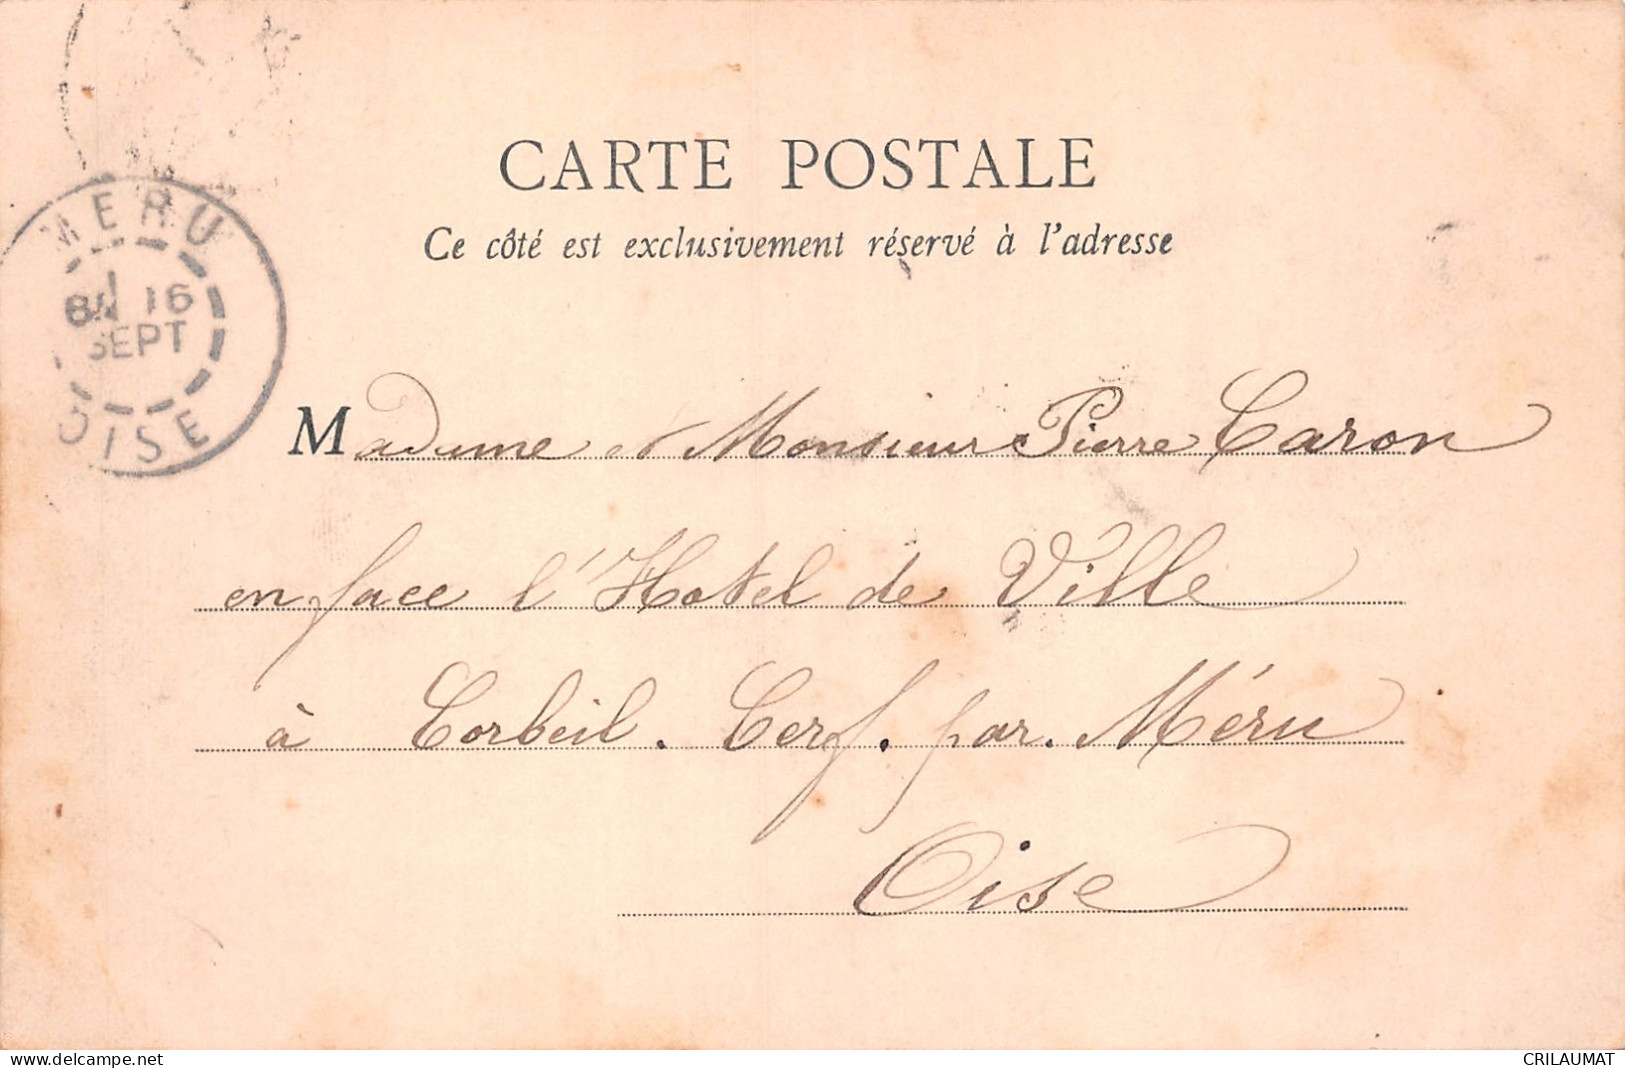 CARTE POSTALE
Ce côté est exclusivement réservé à l'adresse
MERU
16
SEPT
OISE
Madame et Monsieur Pierre Caron
en face l'Hotel de Ville
à Corbeil. Cerf. par. Méru
Oise
delcampe.net
CRILAUMAT